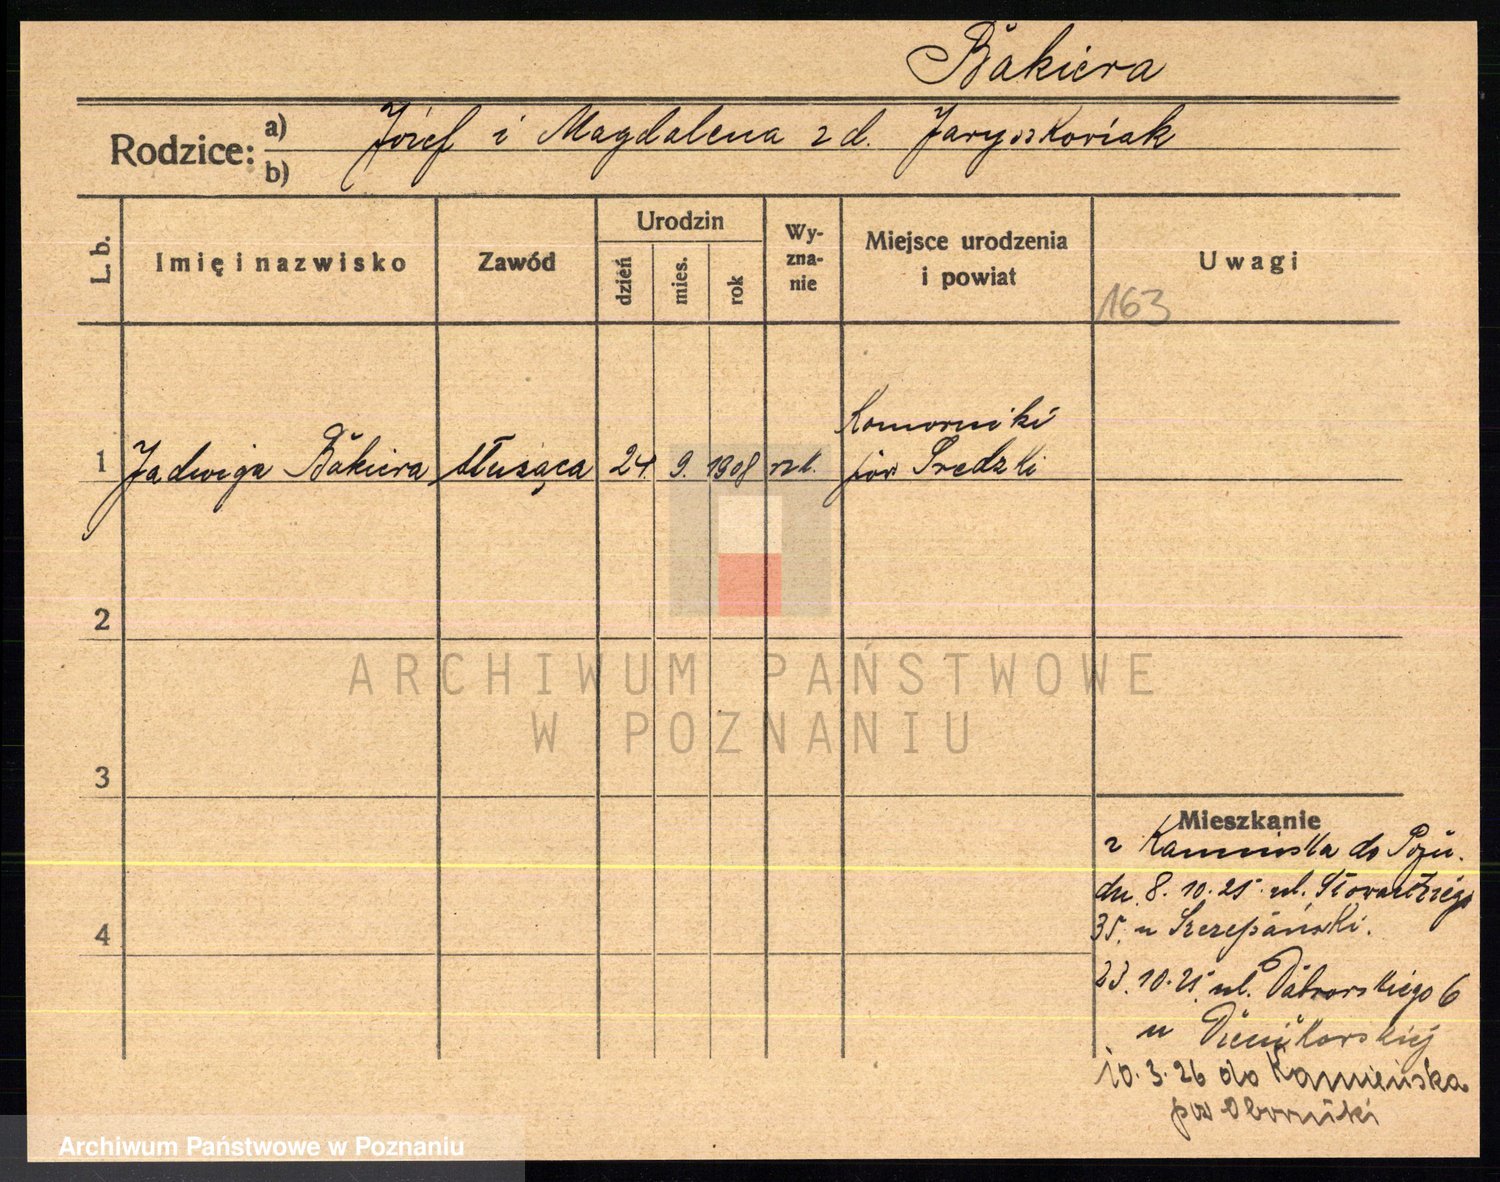 Bakiera
Rodzice: a) b) Józef i Magdalena z d. Jaryszkowiak
L. b.
Imię i nazwisko
Zawód
Urodzin
dzień
mies.
rok
Wy-
zna-
nie
Miejsce urodzenia
i powiat
Uwagi
163
Komorniki
1 Jadwiga Bakiera służąca 24. 9. 1908 rzk. pow
2
3
4
Mieszkanie
z do Pozn.
dn. 8. 10. 25 ul.
35. u Szczepański.
23. 10. 25 ul. Dąbrowskiego 6
u
10. 3. 26 do Kamieńska
pow Oborniki
ARCHIWUM PAŃSTWOWE
W POZNANIU
Archiwum Państwowe w Poznaniu